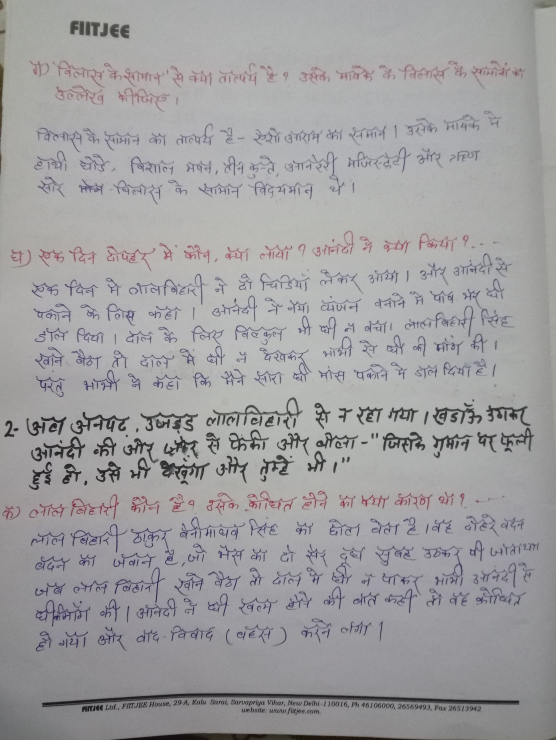 FIITJEE
ग) 'विलास के सामान' से क्या तात्पर्य है? उसके मायके के विलास के सामानों का
उल्लेख कीजिए।
विलास के सामान का तात्पर्य है - ऐशो आराम का समान। उसके मायके में
हाथी घोडे, विशाल भवन, तीन कुत्ते, आनरेरी मजिस्ट्रेटी और ऋण
सारे विलास के सामान विद्यमान थे।
घ) एक दिन दोपहर में कौन, क्या लाया? आनंदी ने क्या किया?...
एक दिन में लालबिहारी ने दो चिडियाँ लेकर आया। और आनंदी से
पकाने के लिए कहा। आनंदी ने नया व्यंजन बनाने में पाव भर घी
डाल दिया। दाल के लिए बिल्कुल भी घी न बचा। लालबिहारी सिंह
खाने बैठा तो दाल में घी न देखकर भाभी से घी की मांग की।
परंतु भाभी ने कहा कि मैंने सारा घी मांस पकाने में डाल दिया है।
2- अब अनपढ, उजड्ड लालबिहारी से न रहा गया। खडाऊँ उठाकर
आनंदी की ओर जोर से फेंकी और बोला - "जिसके गुमान पर फूली
हुई हो, उसे भी देखूंगा और तुम्हें भी।"
क) लाल बिहारी कौन है? उसके क्रोधित होने का क्या कारण था?...
लाल बिहारी ठाकुर बेनीमाधव सिंह का छोटा बेटा है। वह दोहरे बदन
बदन का जवान है, जो भैंस का दो सेर दूध सुबह उठकर पी जाता था
जब लाल बिहारी खाने बैठा तो दाल में घी न पाकर भाभी आनंदी से
घी मांग की। आनंदी ने घी खत्म होने की बात कही तो वह क्रोधित
हो गया और वाद-विवाद (बहस) करने लगा।
FIITJEE Ltd., FIITJEE House, 29-A, Kalu Sarai, Sarvapriya Vihar, New Delhi-110016, Ph 46106000, 26569493, Fax 26513942
website: www.fiitjee.com.